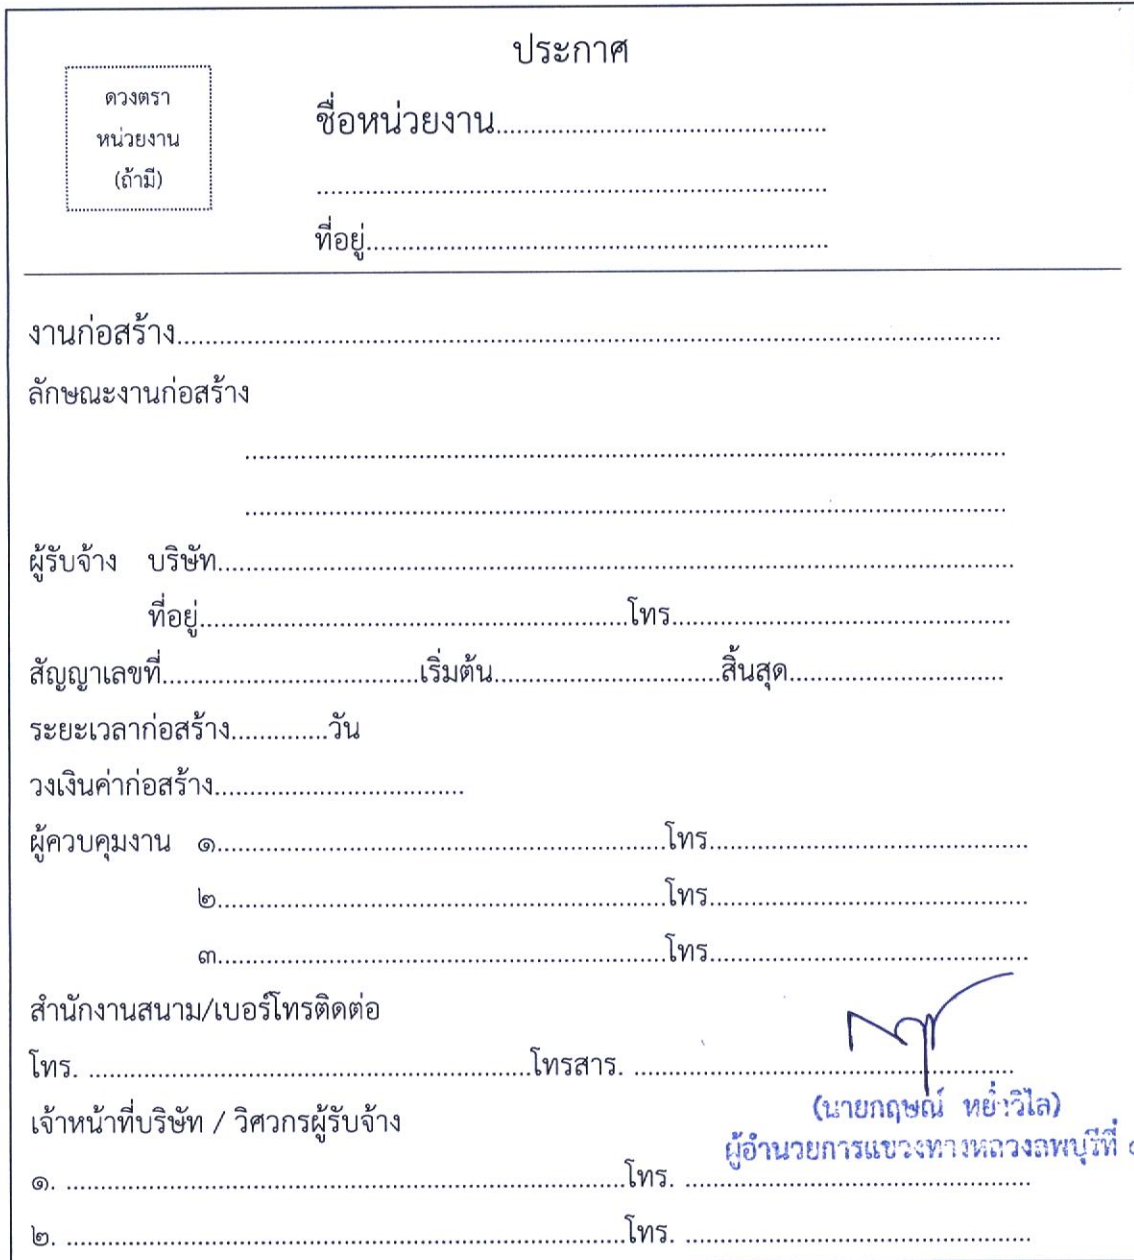 ประกาศ
ดวงตรา
หน่วยงาน
(ถ้ามี)
ชื่อหน่วยงาน................................................
..........................................................................
ที่อยู่...................................................................
งานก่อสร้าง.......................................................................................................................
ลักษณะงานก่อสร้าง
..............................................................................................................
..............................................................................................................
ผู้รับจ้าง บริษัท...................................................................................................................
ที่อยู่..............................................................โทร.................................................
สัญญาเลขที่.....................................เริ่มต้น.................................สิ้นสุด...............................
ระยะเวลาก่อสร้าง..............วัน
วงเงินค่าก่อสร้าง....................................
ผู้ควบคุมงาน ๑.................................................................โทร..............................................
๒.................................................................โทร..............................................
๓.................................................................โทร..............................................
สำนักงานสนาม/เบอร์โทรติดต่อ
โทร. ................................................................โทรสาร. .......................................................
(นายกฤษณ์ หย่ำวิไล)
เจ้าหน้าที่บริษัท / วิศวกรผู้รับจ้าง
ผู้อำนวยการแขวงทางหลวงลพบุรีที่
๑. .................................................................................โทร. ..................................................
๒. .................................................................................โทร. ..................................................